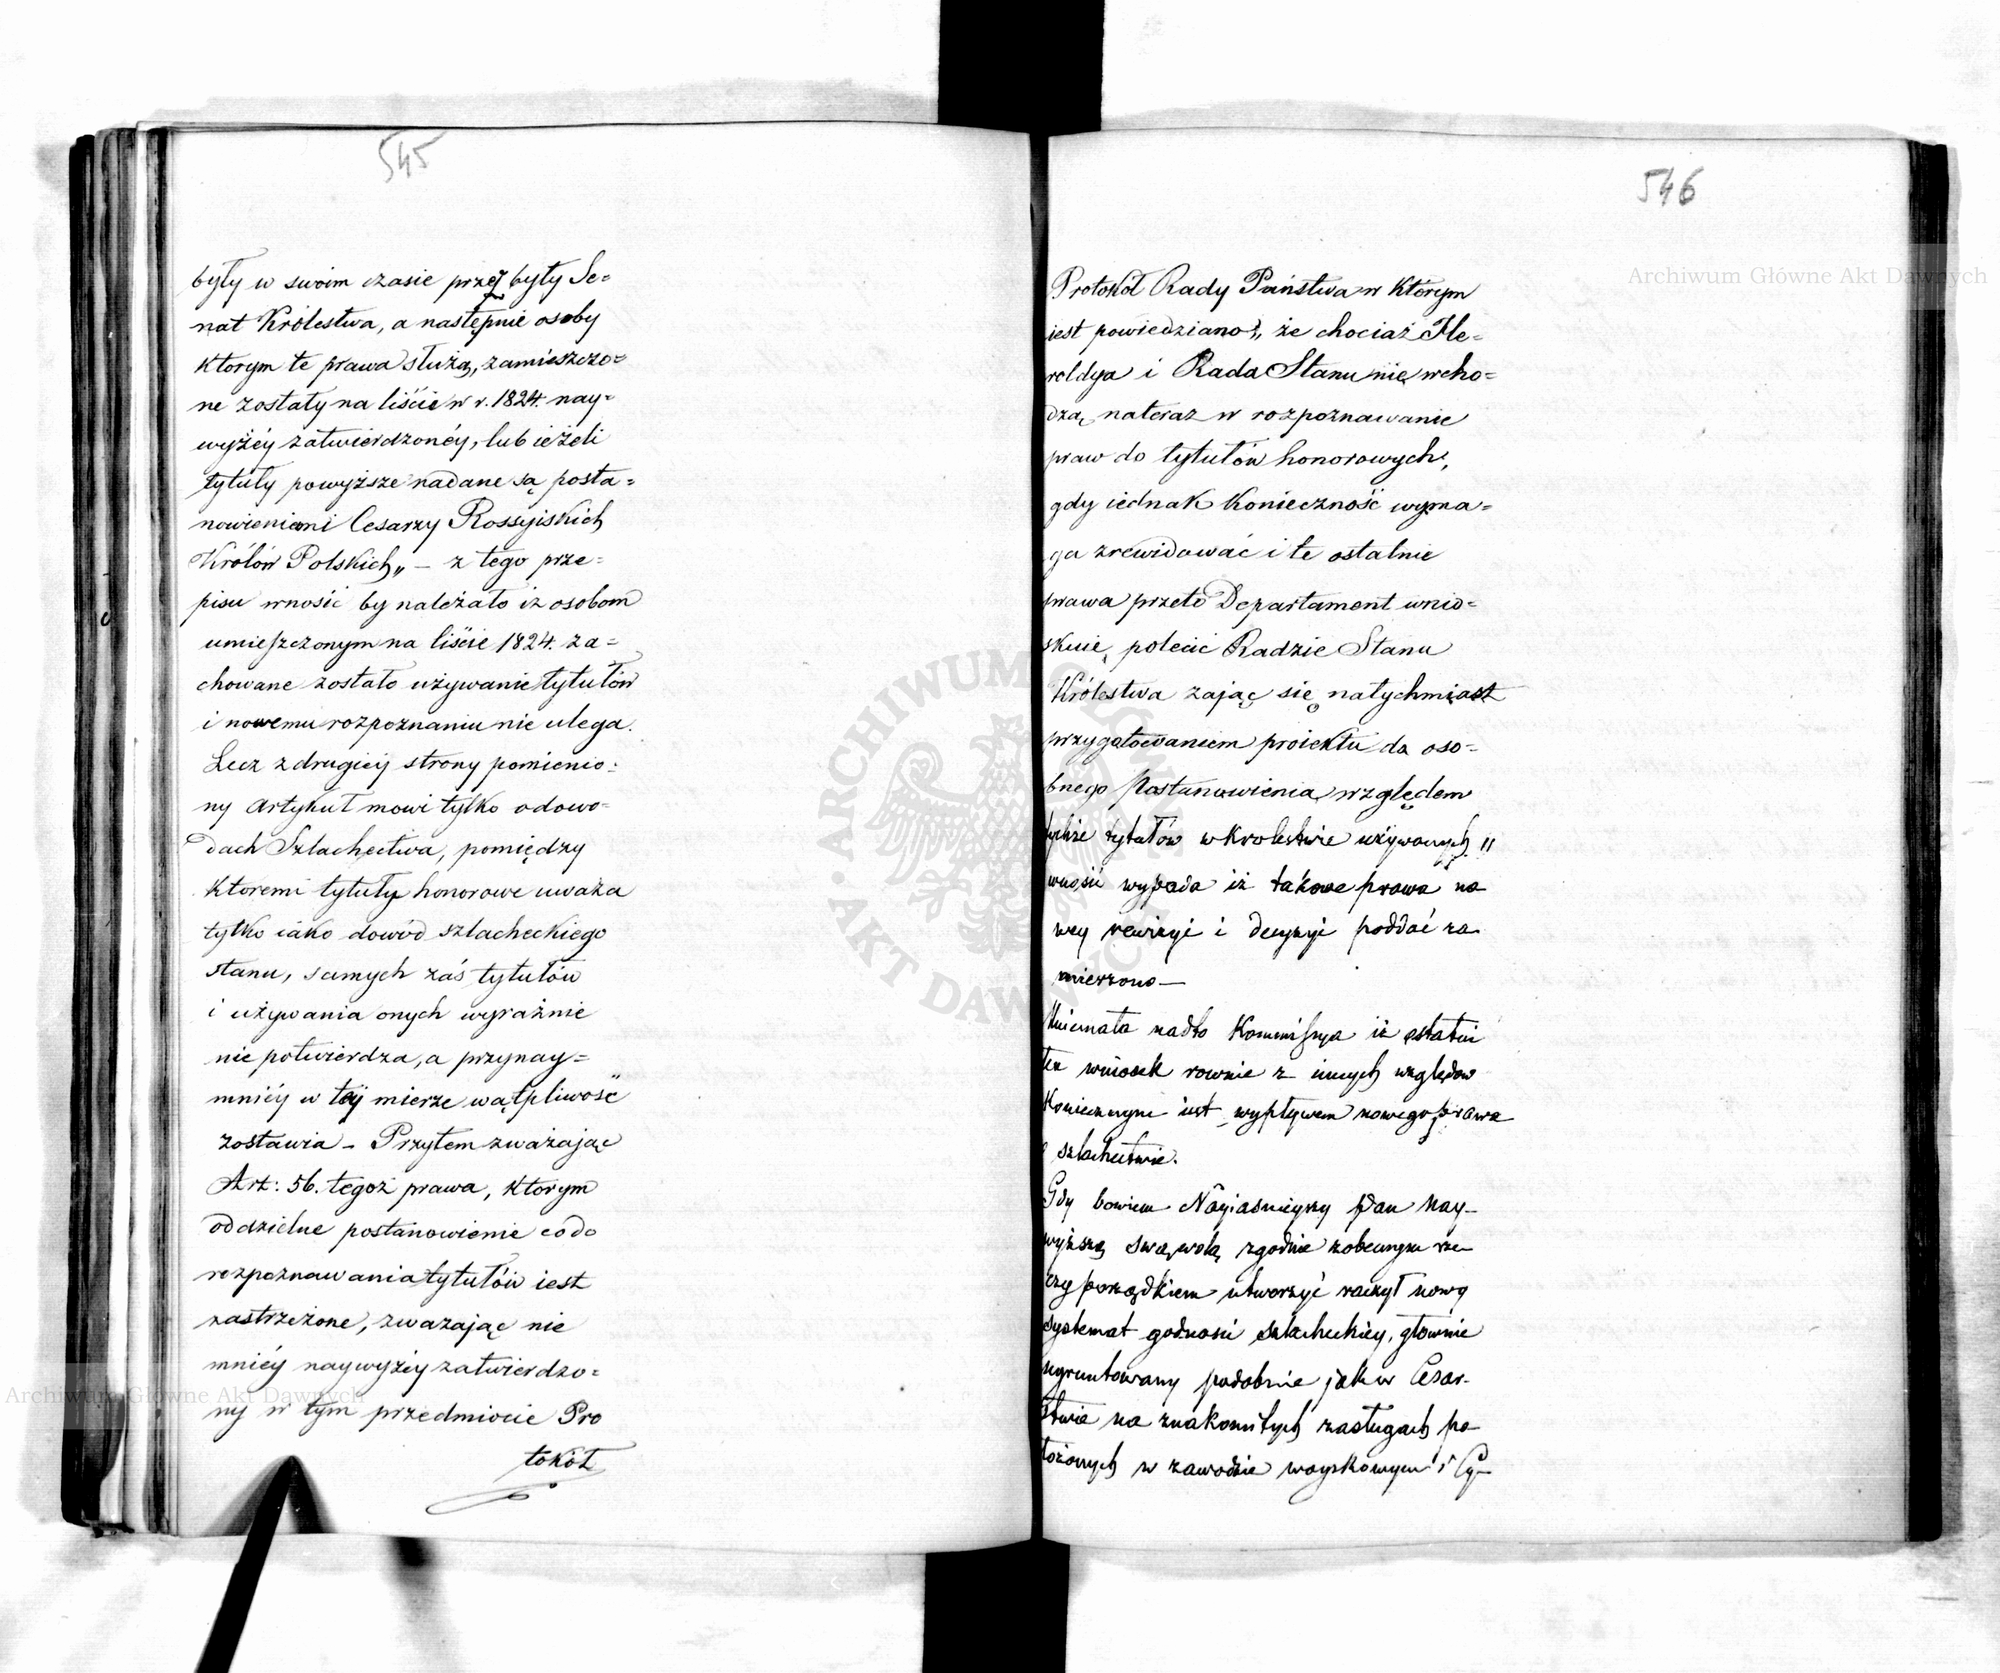 545
były w swoim czasie przez były Se=
nat Królestwa, a następnie osoby
ktorym te prawa służą, zamieszczo=
ne zostały na liście w r. 1824. nay=
wyżéy zatwierdzonéy, lub ieżeli
tytuły powyższe nadane są posta=
nowieniami Cesarzy Rossyiskich
Królów Polskich„ — z tego prze=
pisu wnosić by należało iż osobom
umieszczonym na liście 1824. za=
chowane zostało używanie tytułów
i nowemu rozpoznaniu nie ulega.
Lecz z drugiéy strony pomienio=
ny artykuł mowi tylko o dowo=
dach Szlachectwa, pomiędzy
ktoremi tytuły honorowe uważa
tylko iako dowód szlacheckiego
stanu, samych zaś tytułów
i używania onych wyraźnie
nie potwierdza, a przynay=
mniéy w téy mierze wątpliwość
zostawia — Przytem zważając
Art: 56. tegoż prawa, ktorym
oddzielne postanowienie co do
rozpoznawania tytułów iest
zastrzeżone, zważając nie
mniéy naywyżéy zatwierdzo=
ny w tym przedmiocie Pro
tokół
546
Protokół Rady Państwa w którym
iest powiedziano „ że chociaż He=
roldya i Rada Stanu nie wcho=
dzą nateraz w rozpoznawanie
praw do tytułów honorowych,
gdy iednak konieczność wyma=
ga zrewidować i te ostatnie
prawa przeto Departament wnio=
skuie, polecić Radzie Stanu
Królestwa zająć się natychmiast
przygotowaniem proiektu do oso=
bnego Postanowienia względem
tychże tytułów w Krolestwie używanych "
wnosić wypada iż takowe prawa no
wey rewizyi i decyzyi poddać za
mierzono —
Mniemała nadto Kommissya iż ostatni
ten wniosek rownie z innych względow
koniecznym iest wypływem nowego prawa
o szlachectwie.
Gdy bowiem Nayiaśnieyszy Pan nay-
wyższą swą wolą zgodnie z obecnym rze-
czy porządkiem utworzyć raczył nowy
systemat godności szlacheckiey, głownie
ugruntowany podobnie jak w Cesar-
stwie na znakomitych zasługach po
łożonych w zawodzie woyskowym i Cy-
Archiwum Główne Akt Dawnych
Archiwum Główne Akt Dawnych